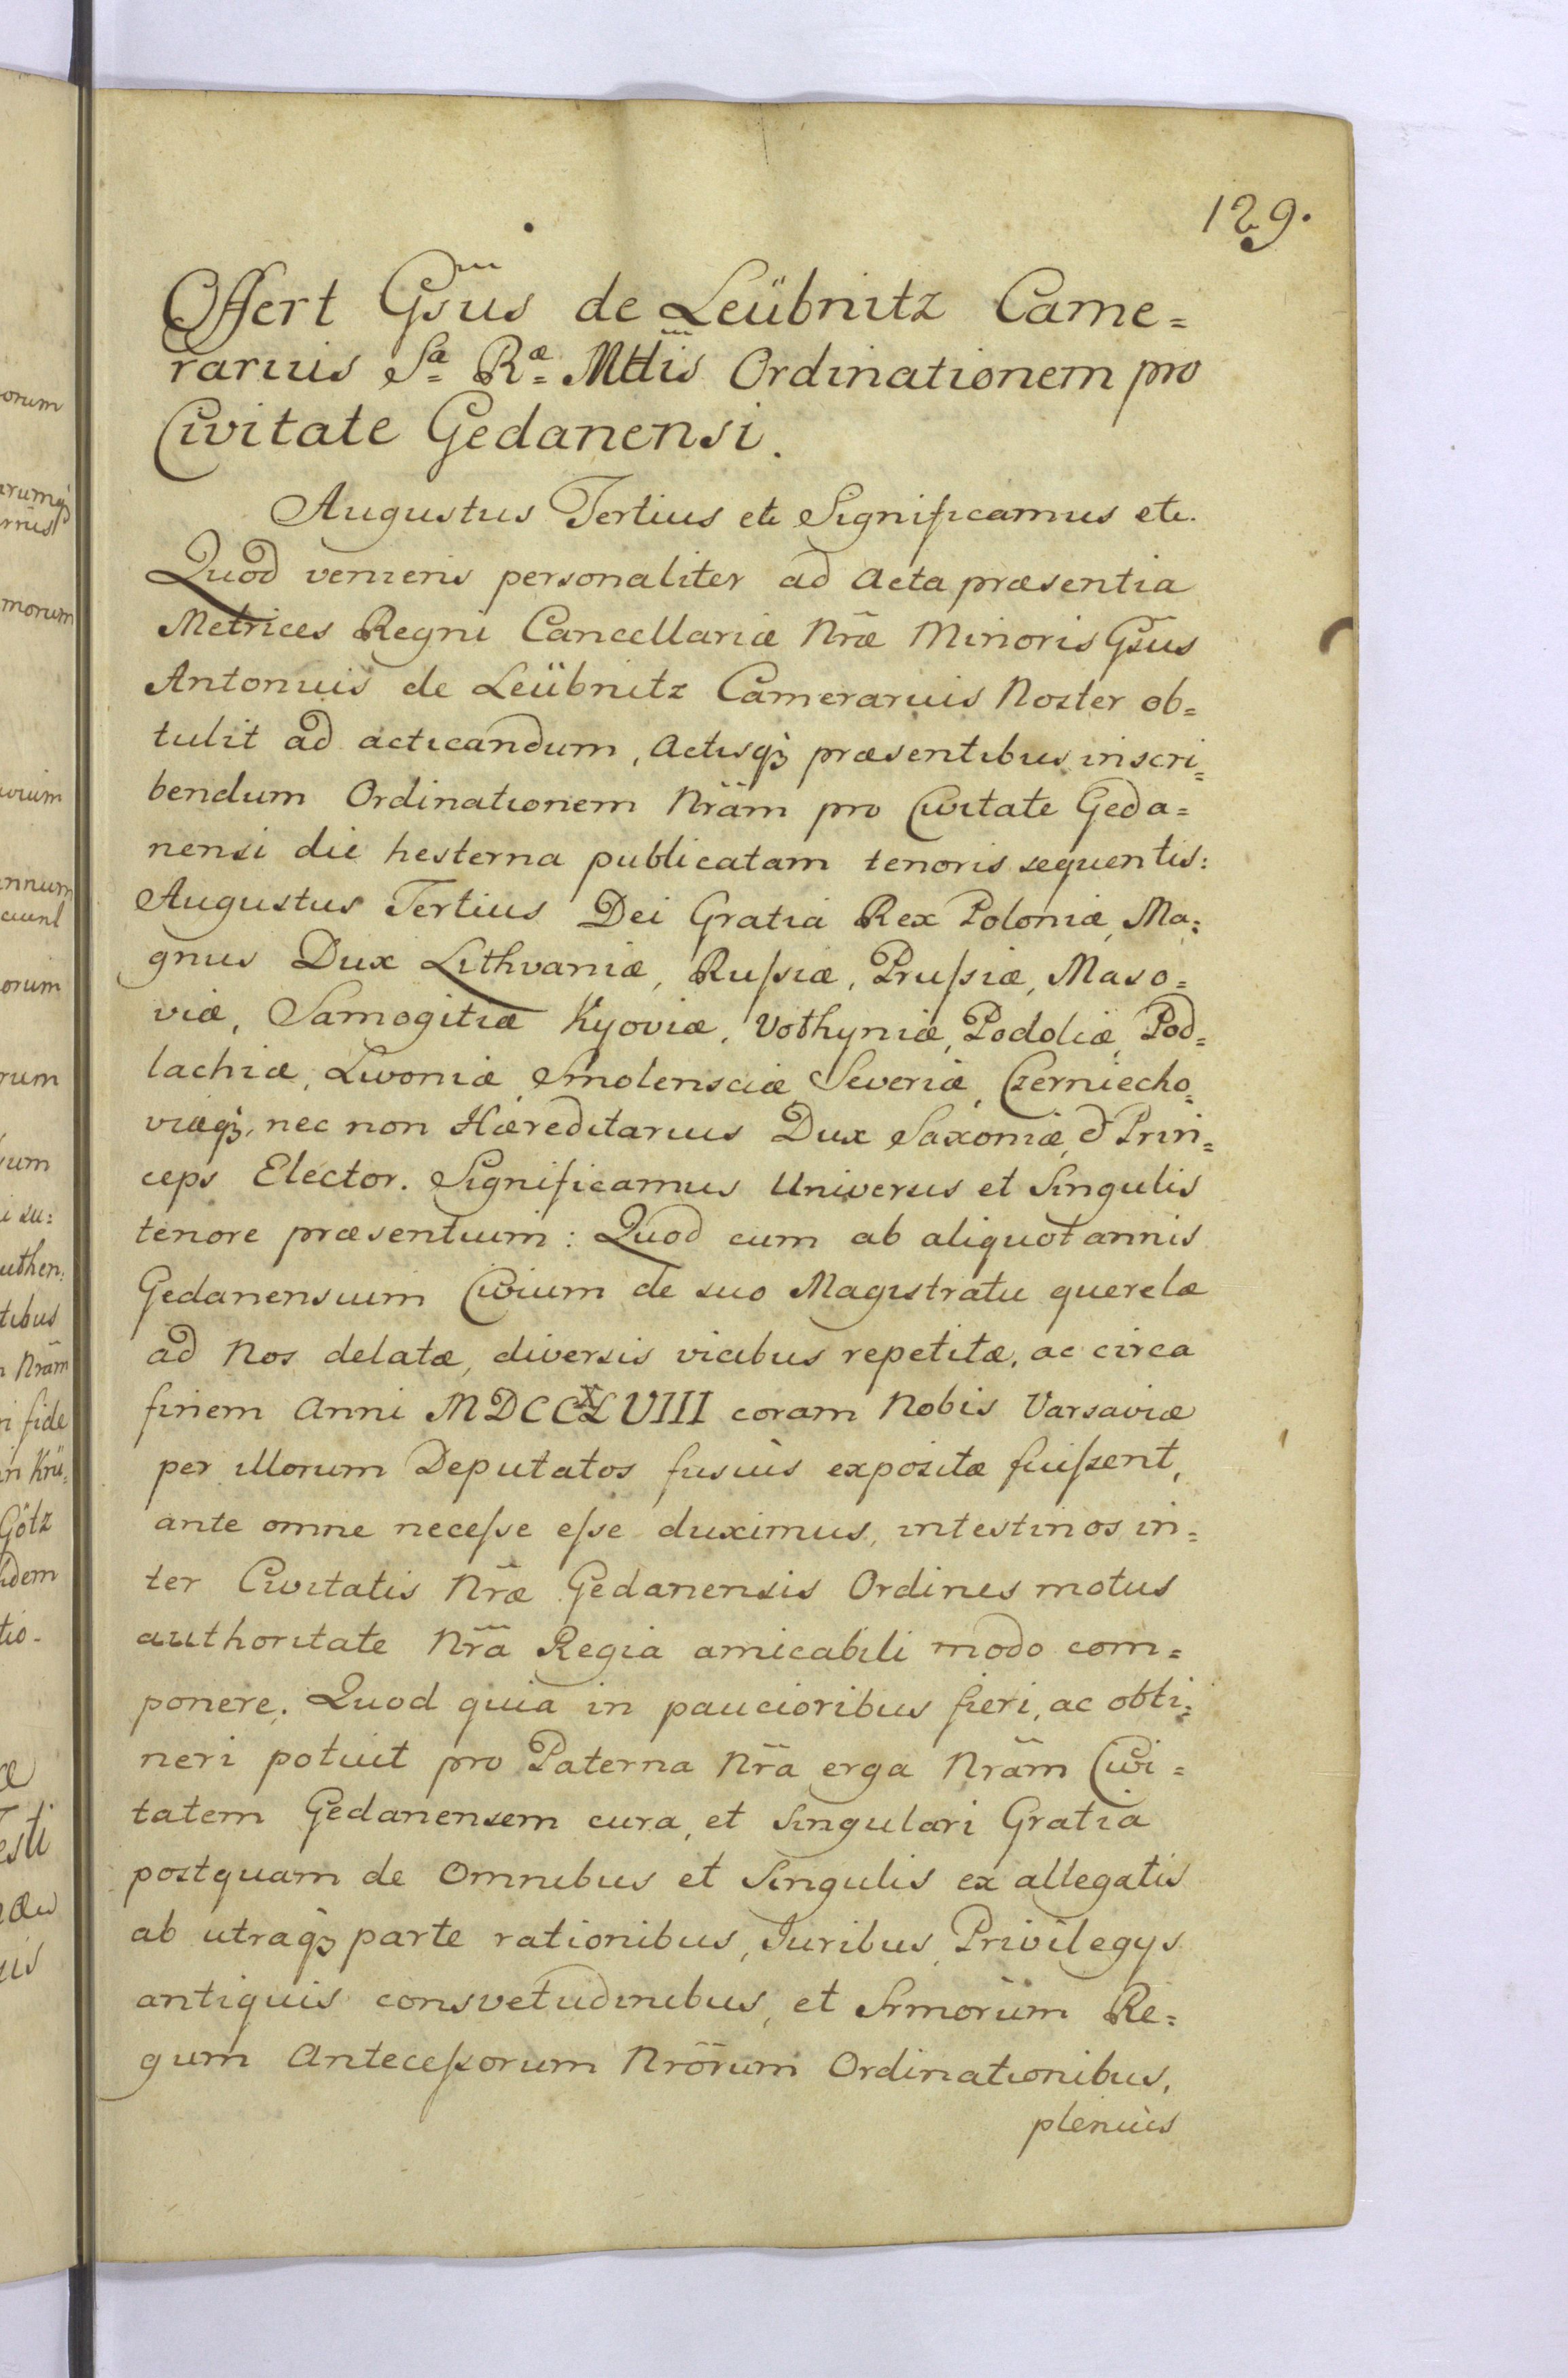 129.
Offert Gsũs de Leübnitz Came=
rarius Sæ Ræ Mttis Ordinationem pro
Civitate Gedanensi.
Augustus Tertius etc Significamus etc.
Quod veniens personaliter ad Acta præsentia
Metrices Regni Cancellariæ Nræ Minoris Gsus
Antonius de Leübnitz Camerarius Noster ob=
tulit ad acticandum, Actisqꝫ præsentibus inscri=
bendum Ordinationem Nrãm pro Civitate Geda=
nensi die hesterna publicatam tenoris sequentis:
Augustus Tertius Dei Gratia Rex Poloniæ, Ma=
gnus Dux Lithvaniæ, Rußiæ, Prußiæ, Maso=
viæ, Samogitiæ Kyoviæ, Volhyniæ, Podoliæ, Pod=
lachiæ, Livoniæ, Smolensciæ, Severiæ, Czerniecho=
viæqꝫ, nec non Hæreditarius Dux Saxoniæ, & Prin=
ceps Elector. Significamus Universis et Singulis
tenore præsentium: Quod cum ab aliquot annis
Gedanensium Civium de suo Magistratu querelæ
ad Nos delatæ, diversis vicibus repetitæ, ac circa
finem Anni MDCCXLVIII coram Nobis Varsaviæ
per illorum Deputatos fusius expositæ fuißent,
ante omne neceße eße duximus, intestinos in=
ter Civitatis Nræ Gedanensis Ordines motus
authoritate Nrã Regia amicabili modo com=
ponere. Quod quia in paucioribus fieri, ac obti=
neri potuit pro Paterna Nrã erga Nrãm Civi=
tatem Gedanensem cura, et Singulari Gratia
postquam de Omnibus et Singulis ex allegatis
ab utraqꝫ parte rationibus, Juribus, Privilegys
antiquis consvetudinibus, et Srmorum Re=
gum Anteceßorum Nrõrum Ordinationibus,
plenius